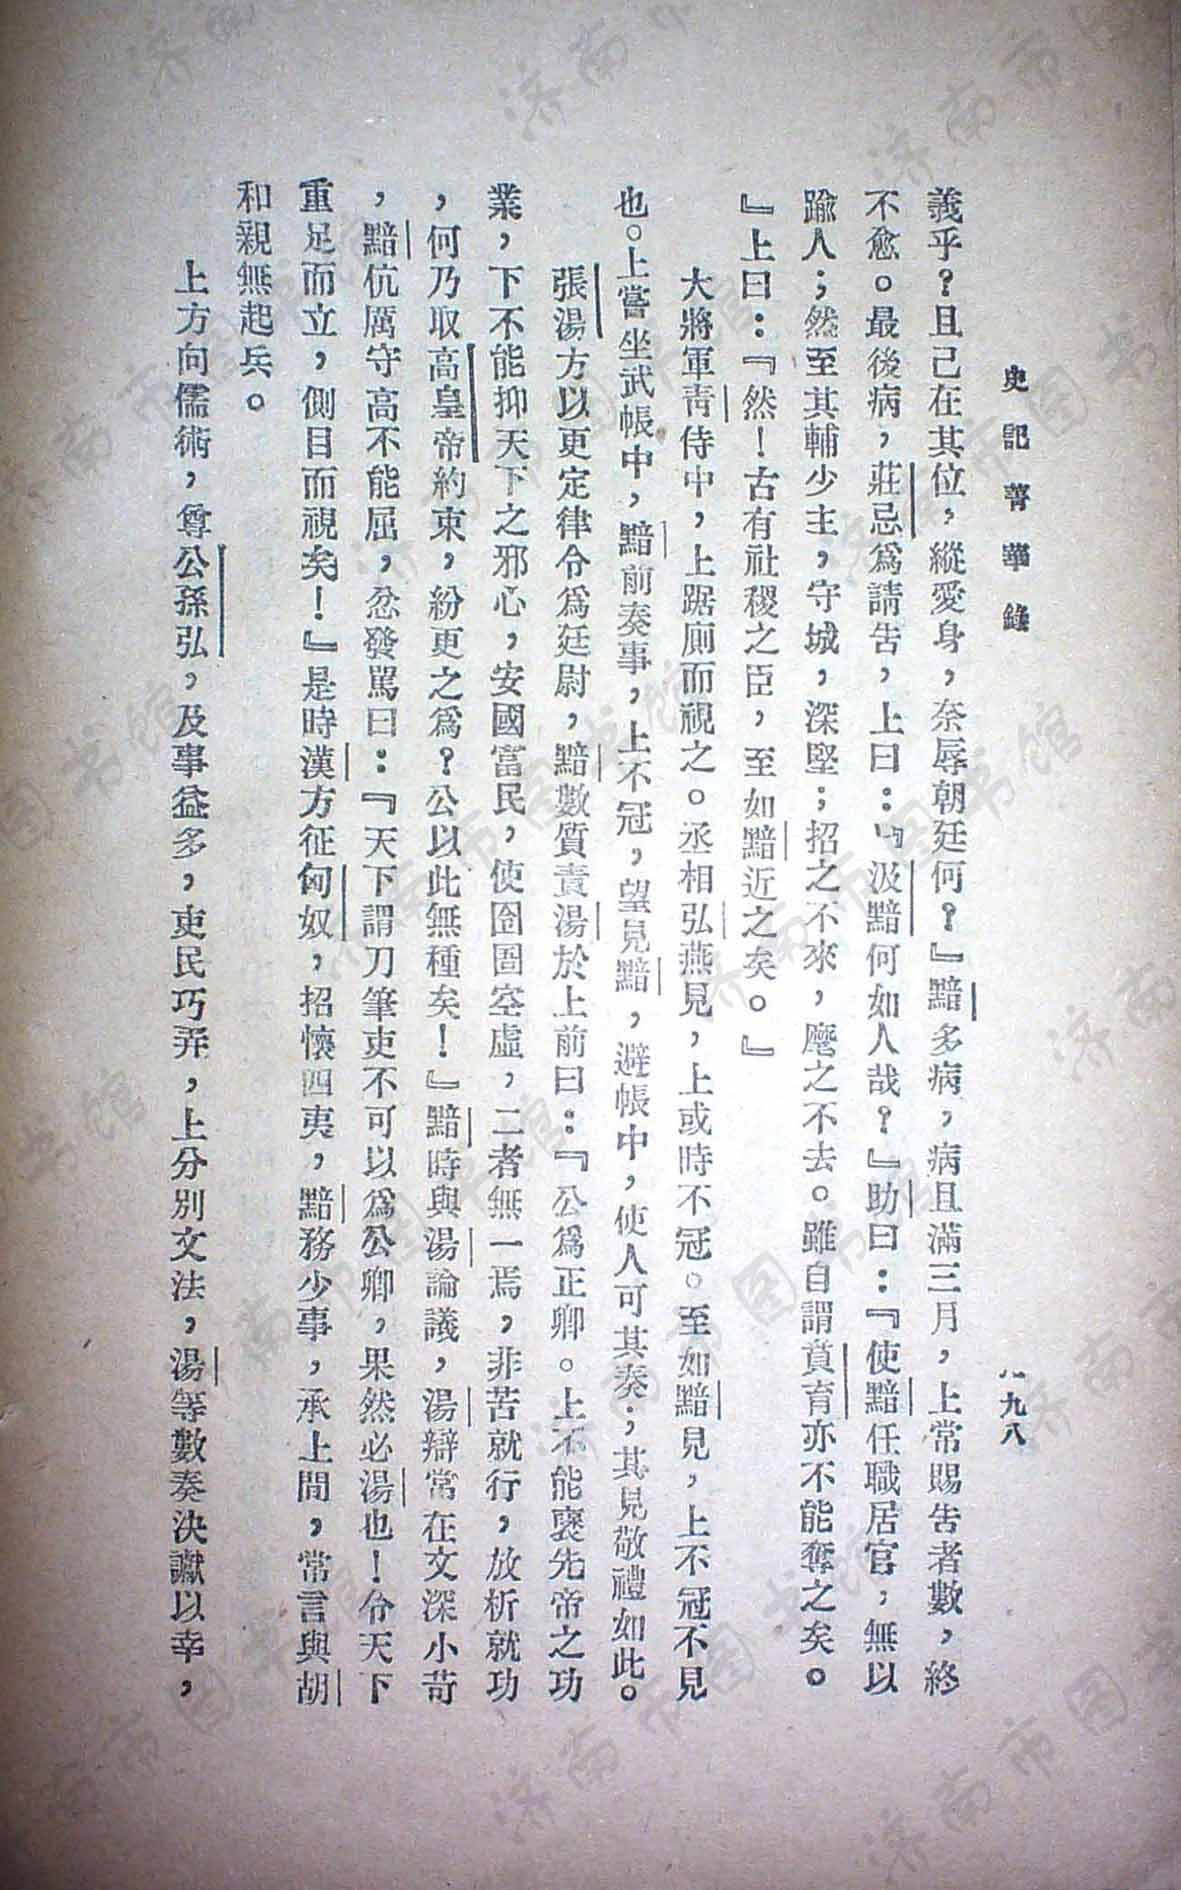 史記菁華錄
一九八
義乎？且已在其位，縱愛身，奈辱朝廷何？』黯多病，病且滿三月，上常賜告者數，終
不愈。最後病，莊忌爲請告，上曰：『汲黯何如人哉？』助曰：『使黯任職居官，無以
踰人；然至其輔少主，守城，深堅；招之不來，麾之不去。雖自謂賁育亦不能奪之矣。
』上曰：『然！古有社稷之臣，至如黯近之矣。』
大將軍靑侍中，上踞廁而視之。丞相弘燕見，上或時不冠。至如黯見，上不冠不見
也。上嘗坐武帳中，黯前奏事，上不冠，望見黯，避帳中，使人可其奏；其見敬禮如此。
張湯方以更定律令爲廷尉，黯數質責湯於上前曰：『公爲正卿。上不能襃先帝之功
業，下不能抑天下之邪心，安國富民，使囹圄空虛，二者無一焉，非苦就行，放析就功
，何乃取高皇帝約束，紛更之爲？公以此無種矣！』黯時與湯論議，湯辯常在文深小苛
，黯伉厲守高不能屈，忿發罵曰：『天下謂刀筆吏不可以爲公卿，果然必湯也！令天下
重足而立，側目而視矣！』是時漢方征匈奴，招懷四夷，黯務少事，承上間，常言與胡
和親無起兵。
上方向儒術，尊公孫弘，及事益多，吏民巧弄，上分別文法，湯等數奏決讞以幸，
济南市图书馆